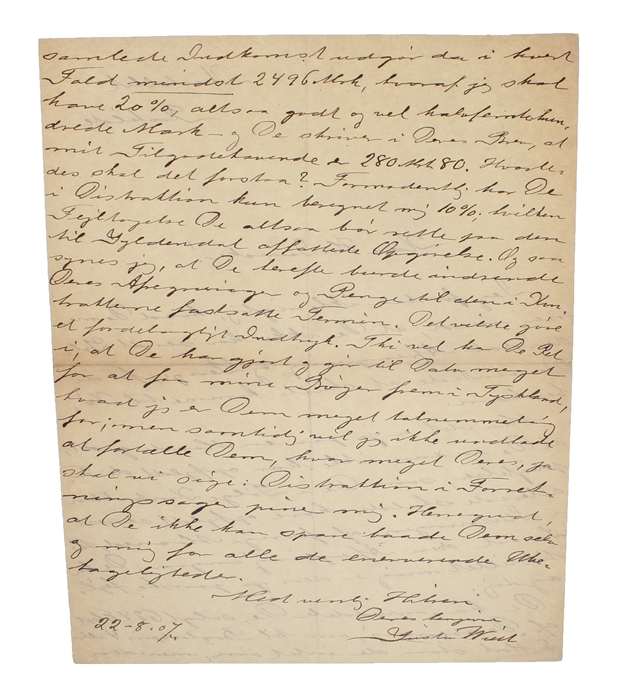 samlede Indkomst udgør da i hvert
Fald mindst 2496 Mrk, hvoraf jeg skal
have 20%, altsaa godt og vel halvfemtehun-
drede Mark – og De skriver i Deres Brev, at
mit Tilgodehavende er 280 Mk 80. Hvorle-
des skal det forstaa? Formodentlig har De
i Distraktion kun beregnet mig 10%. hvilken
Fejltagelse De altsaa bør rette paa den
til Gyldendal affattede Opgørelse. Og saa
synes jeg, at De herefter burde indsende
Deres Afregninger og Penge til den i Kon-
trakterne fastsatte Termin. Det vilde gøre
et fordelagtigt Indtryk. Thi vel har De Ret
i, at De har gjort og gør til Dato meget
for at faa mine Bøger frem i Tyskland,
hvad jeg er Dem meget taknemmelig
for; men samtidig vil jeg ikke undlade
at fortælle Dem, hvor meget Deres, ja
skal vi sige: Distraktion i Forret-
ningssager piner mig. Herregud,
at De ikke kan spare baade Dem selv
og mig for alle de enerverende Ube-
hageligheder.
Med venlig Hilsen
Deres hengivne
Gustav Wied
22-8.07